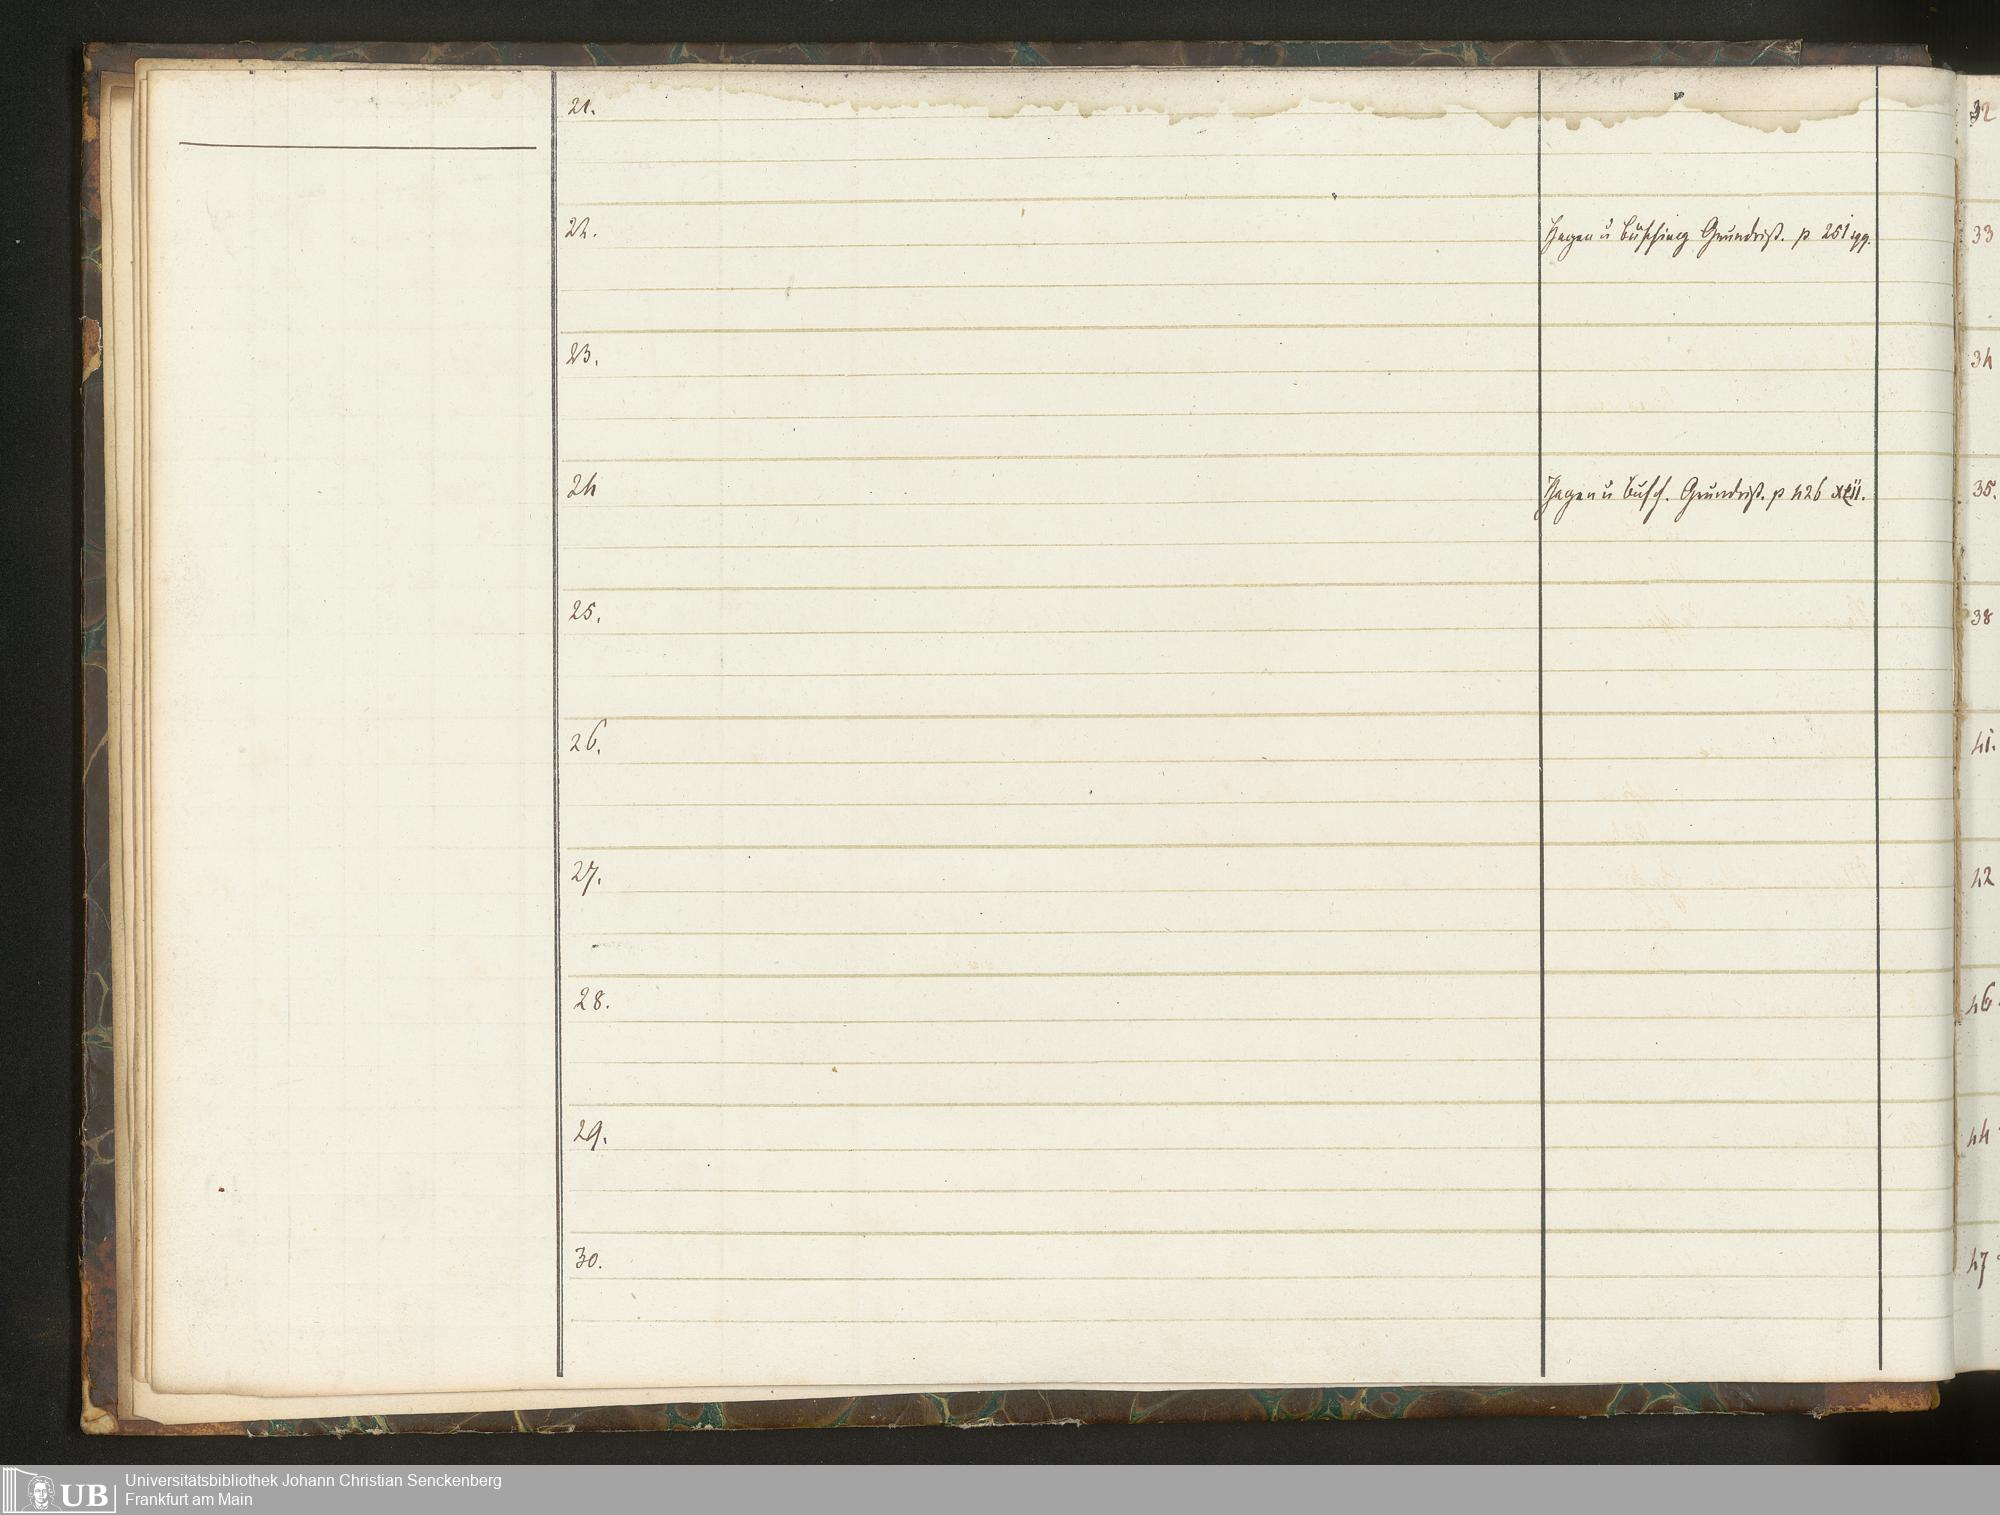 21.
22.
Hagen u Büsching Grundriß. p 251 sqq.
23.
24
Hagen u Büsch. Grundriß. p 426
25.
26.
27.
28.
29.
30.
32
33
34
35.
38
41.
42
46.
44
47
Universitätsbibliothek Johann Christian Senckenberg
UB
Frankfurt am Main